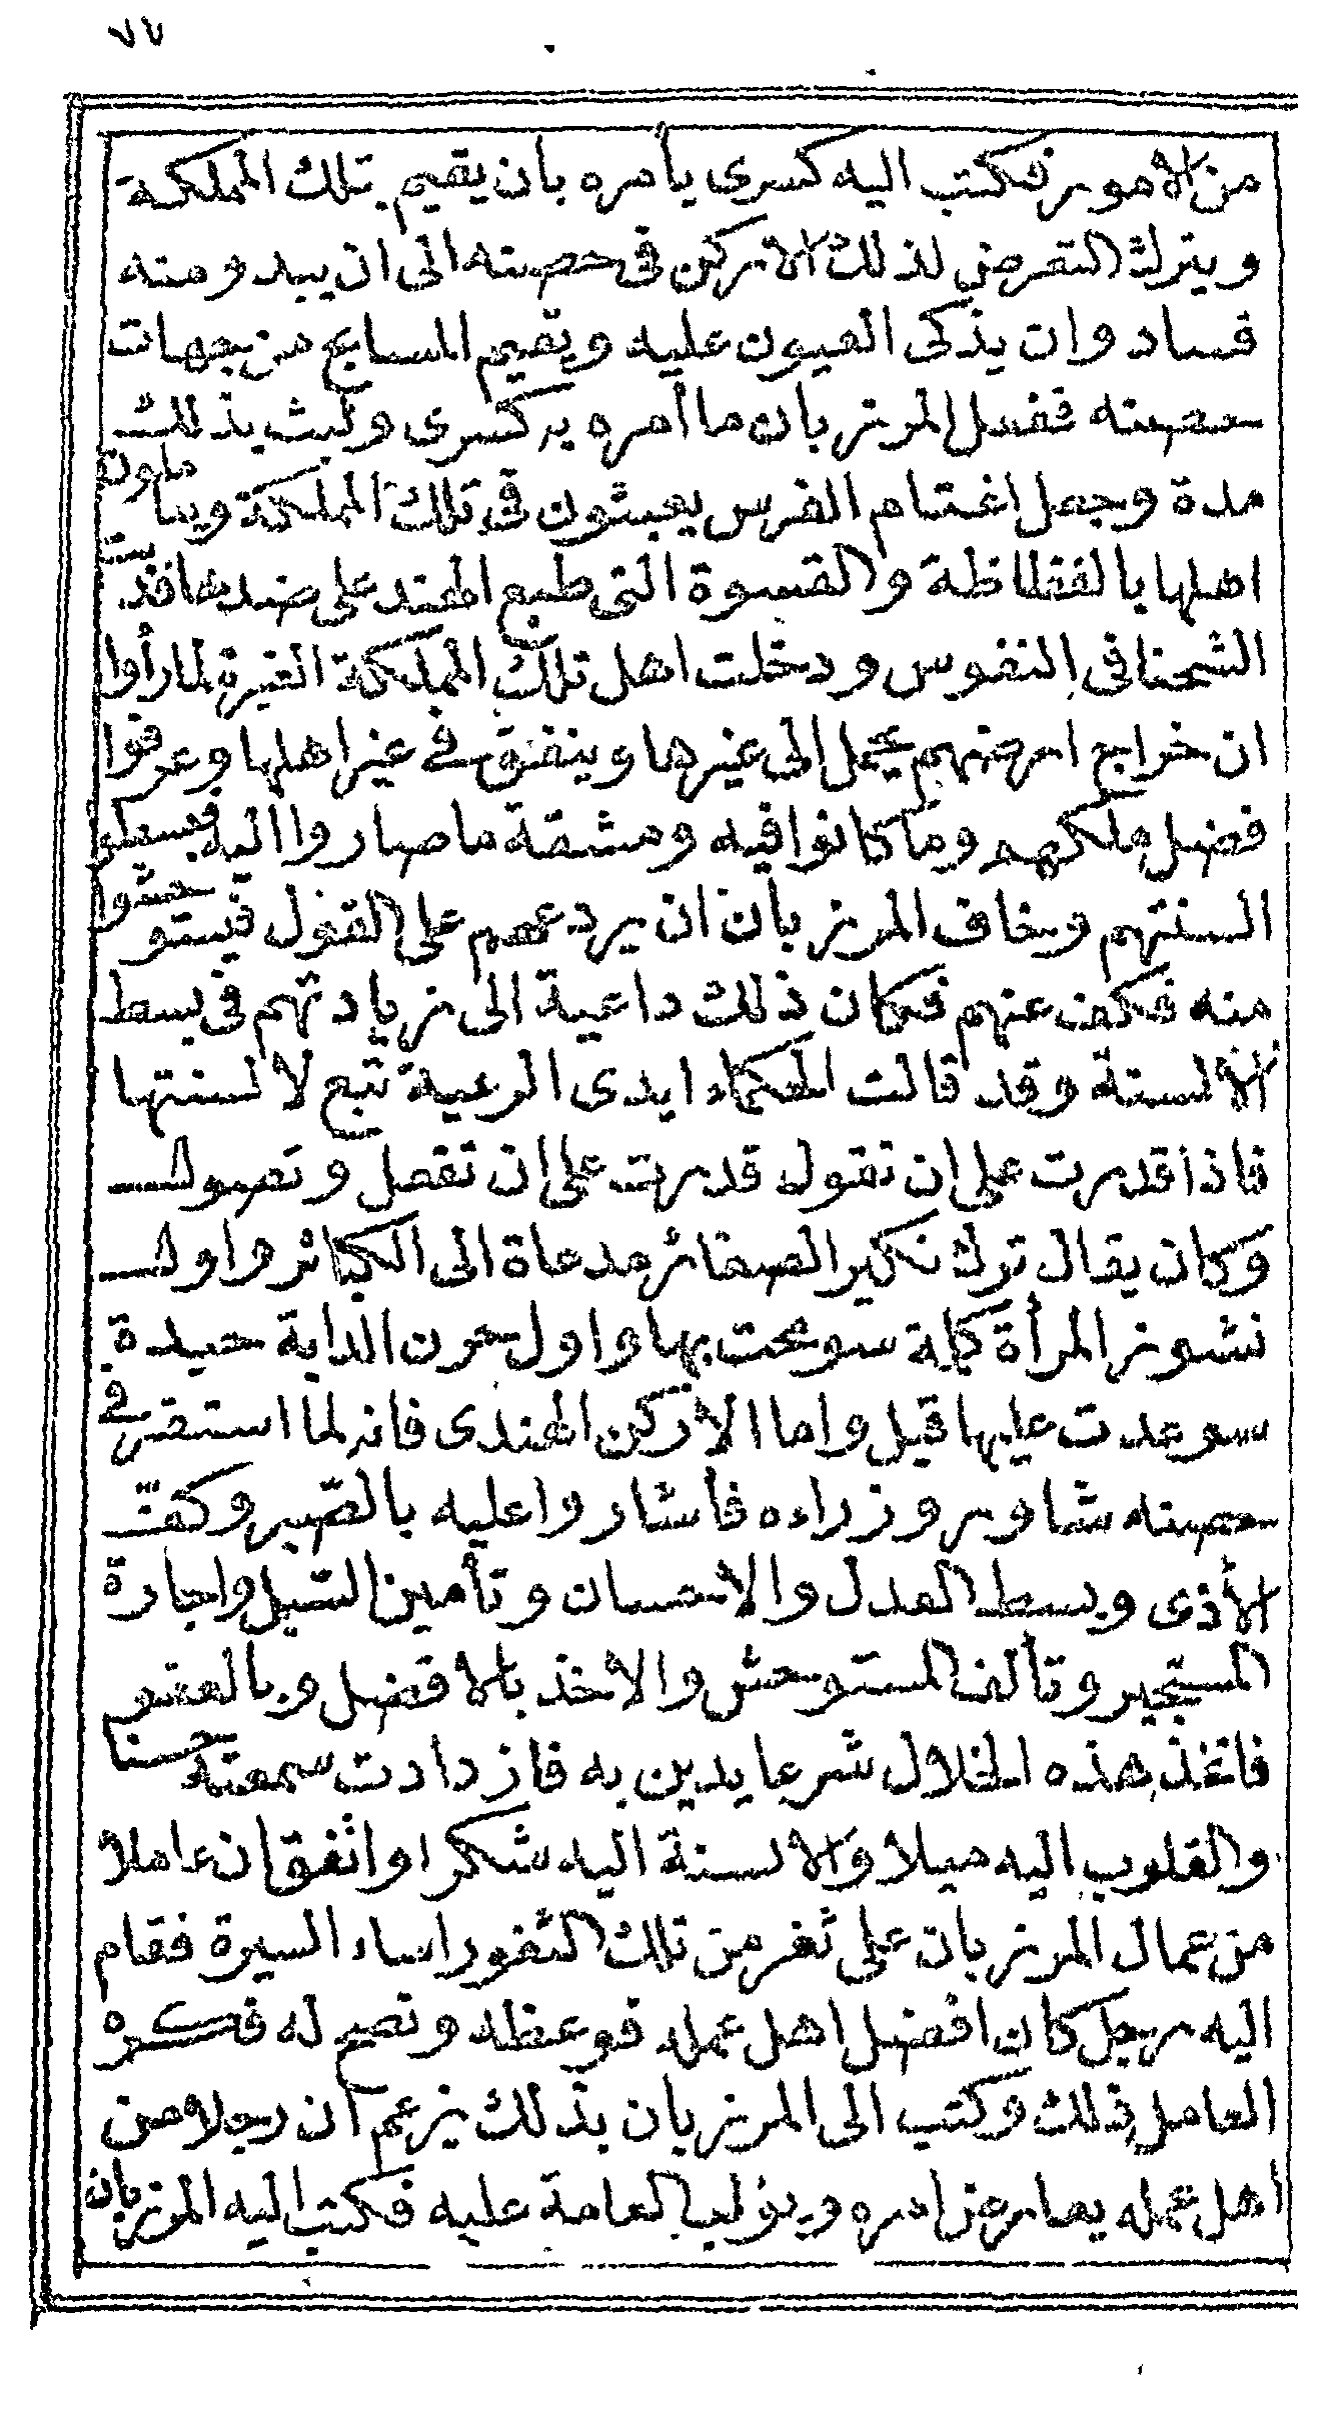 ٧٧
من الامور فكتب اليه كسرى يأمره بان يقيم بتلك المملكة
ويترك التعرض لذلك الاركن فى حصنه الى ان يبدو منه
فساد وان يذكى العيون عليه ويقيم المسابع من جهات
حصنه ففعل المرزبان ما أمره به كسرى ولبث بذلك
مدة وجعل اغتام الفرس يعبثون فى تلك المملكة ويعاملون
اهلها بالفظاظة والقسوة التى طبع الهند على ضدها فدبت
الشحنا فى النفوس ودخلت اهل تلك المملكة الغيرة لما رأوا
ان خراج ارضهم يحمل الى غيرها وينفق فى غير اهلها وعرفوا
فضل ملكهم وما كانوا فيه ومشقة ما صاروا اليه فبسطوا
السنتهم وخاف المرزبان ان يردعهم على القول فيستوحشوا
منه فكف عنهم فكان ذلك داعية الى زيادتهم فى بسط
الالسنة وقد قالت الحكماء ايدى الرعية تبع لالسنتها
فاذا قدرت على ان تقول قدرت على ان تفعل وتصول
وكان يقال ترك نكير الصغائر مدعاة الى الكبائر واول
نشوز المرأة كلمة سومحت بها واول حرن الدابة حيدة
سوعدت عليها قيل واما الاركن الهندى فانه لما استقر فى
حصنه شاور وزراءه فأشاروا عليه بالصّبر وكفّ
الأذى وبسط العدل والاحسان وتأمين السّبل واجارة
المستجير وتألف المستوحش والاخذ بالافضل وبالعفو
فاتخذ هذه الخلال شرعا يدين به فازدادت سمعته حسنا
والقلوب اليه ميلا والالسنة اليه شكرا واتفق ان عاملا
من عمال المرزبان على ثغر من تلك الثغور اساء السيرة فقام
اليه رجل كان افضل اهل عمله فوعظه ونصح له فكره
العامل ذلك وكتب الى المرزبان بذلك يزعم ان رجلا من
اهل عمله يعارض امره ويؤلب العامة عليه فكتب اليه المرزبان